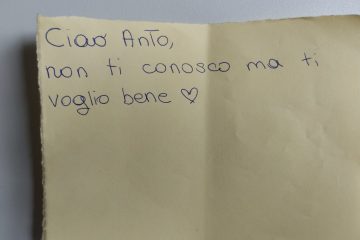 Ciao Anto,
non ti conosco ma ti
voglio bene ♡